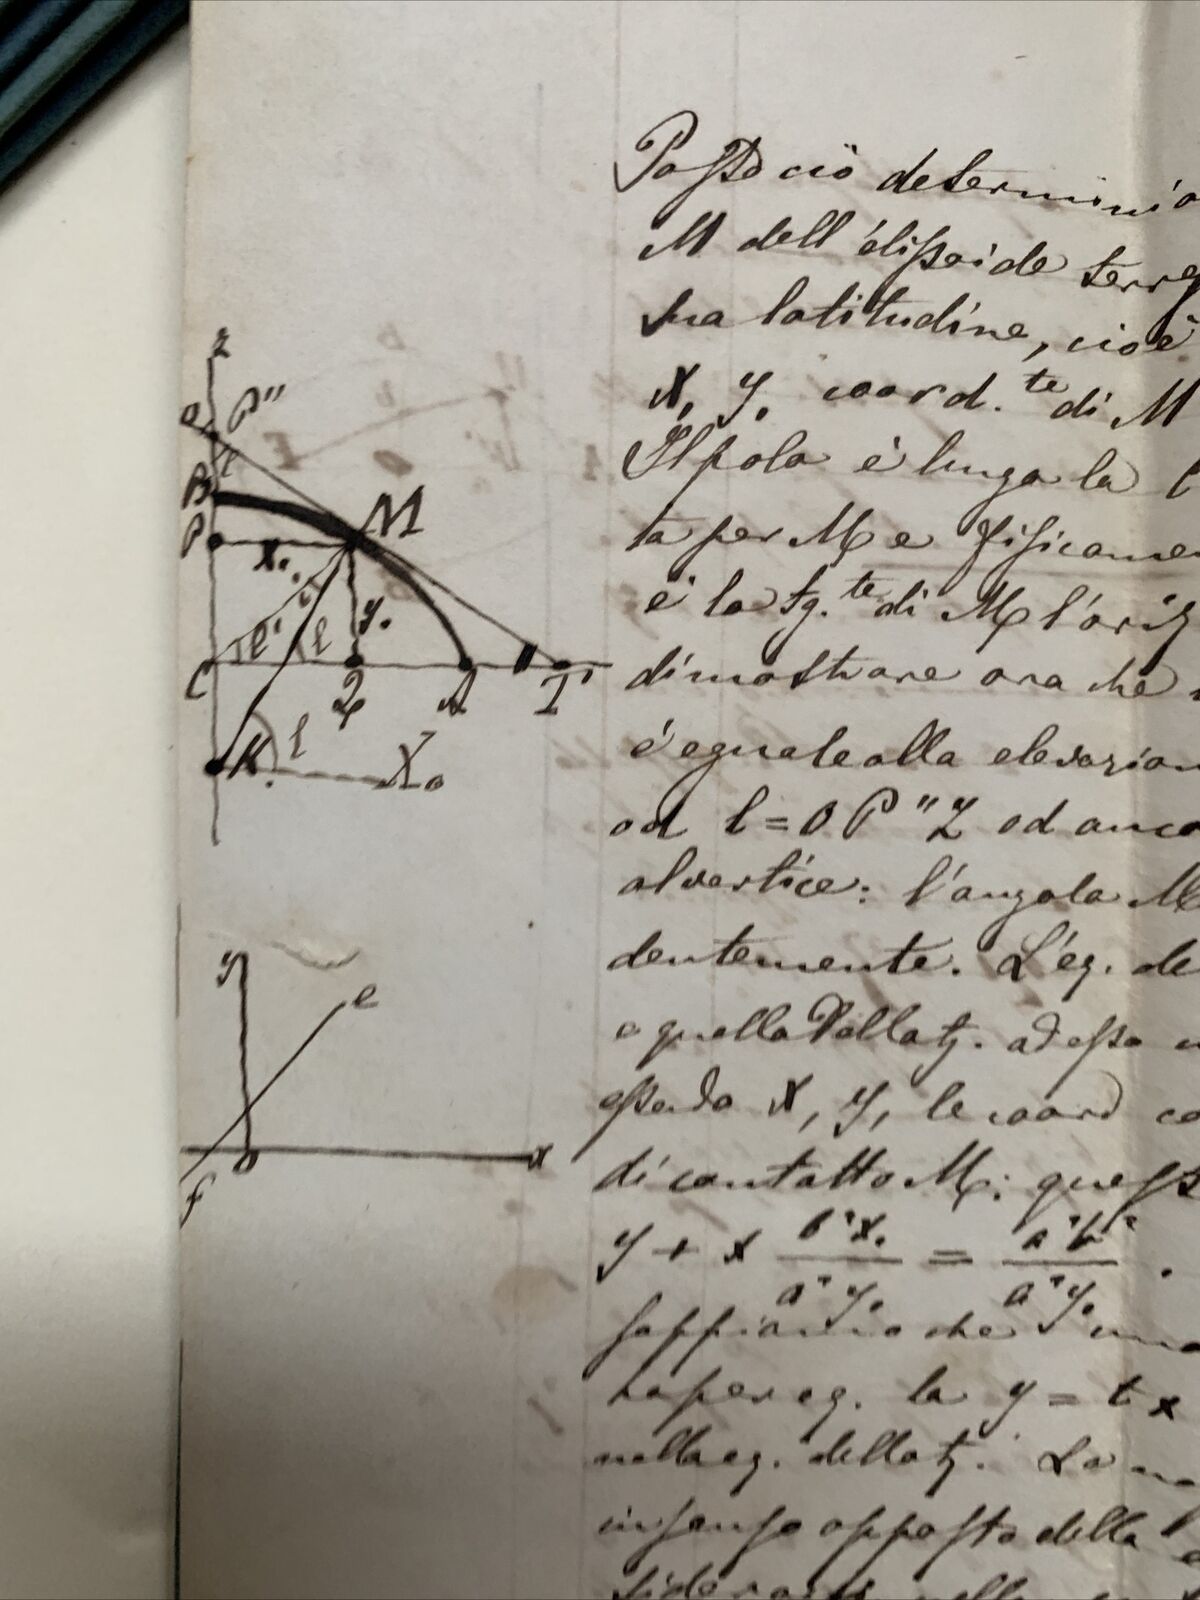 z
P"
B
P
M
x₀
y₀
l'
l
C
Q
A
T
l
K
X₀
Posto ciò determinia
M dell'élissoide terre
sua latitudine, cioè
x₀ y₀ coord.te di M
Il polo è lungo la
ta per M e fisicamen
è la tg.te di M l'oriz
dimostrare ora che
é eguale alla elevazion
od l = O P"Z od anco
al vertice: l'angolo M
dentemente. L'eq. de
e quella della tg. ad essa
essendo x, y, le coord co
di contatto M; quest
y + x b²x₀/a²y₀ = a²b²/a²y₀.
sappiamo che una
ha per eq. la y = t x
nella eq. della tg. La
in senso opposto della
y
e
o
x
f